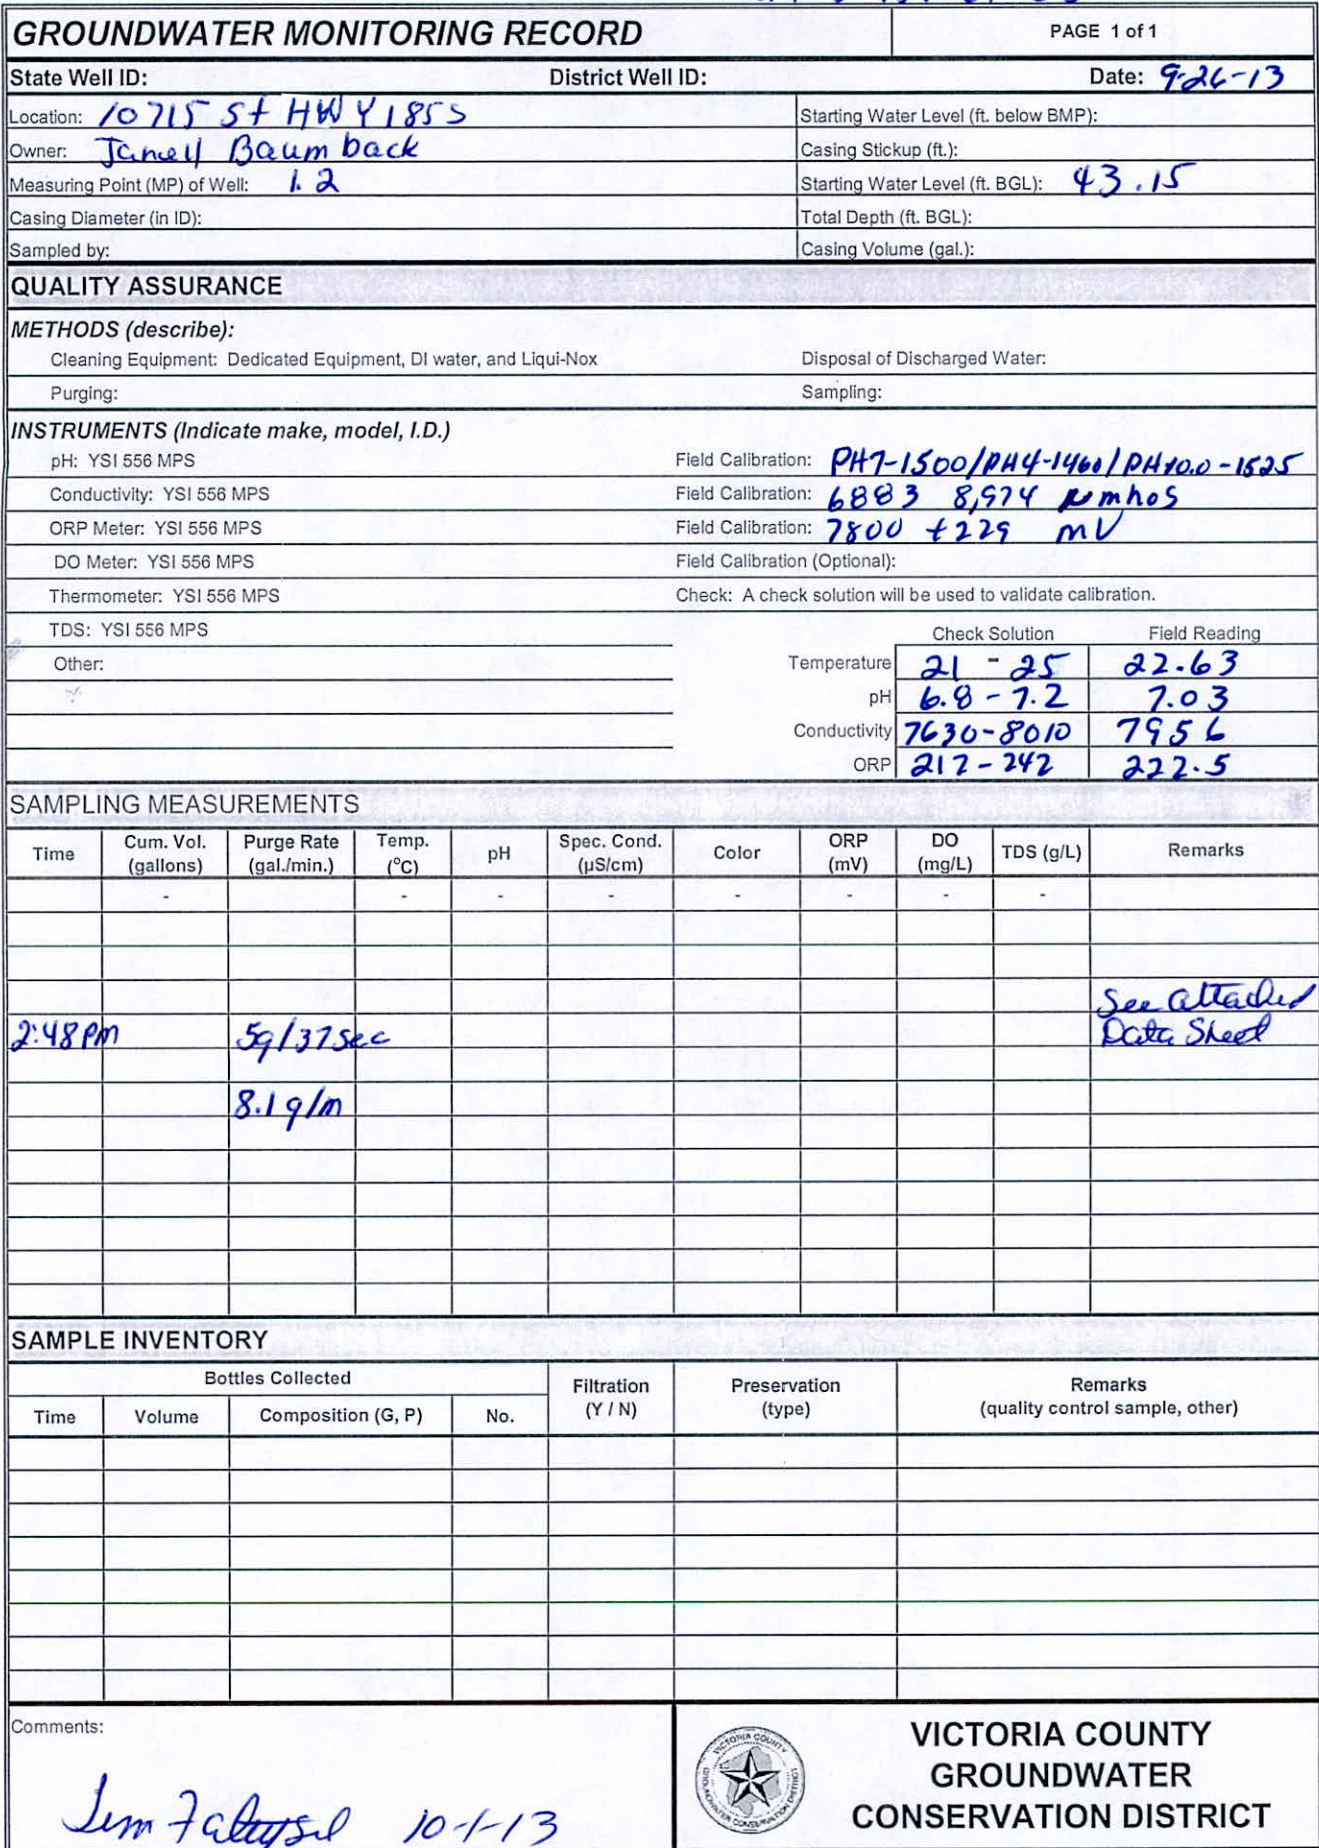 GROUNDWATER MONITORING RECORD PAGE 1 of 1
State Well ID: District Well ID: Date: 9-26-13
Location: 10715 St HWY 185S Starting Water Level (ft. below BMP):
Owner: Janell Baumback Casing Stickup (ft.):
Measuring Point (MP) of Well: 1.2 Starting Water Level (ft. BGL): 43.15
Casing Diameter (in ID): Total Depth (ft. BGL):
Sampled by: Casing Volume (gal.):
QUALITY ASSURANCE
METHODS (describe):
Cleaning Equipment: Dedicated Equipment, DI water, and Liqui-Nox Disposal of Discharged Water:
Purging: Sampling:
INSTRUMENTS (Indicate make, model, I.D.)
pH: YSI 556 MPS Field Calibration: PH7-1500/PH4-1460/PH10.0-1525
Conductivity: YSI 556 MPS Field Calibration: 6883 8,974 μmhos
ORP Meter: YSI 556 MPS Field Calibration: 7800 +229 mV
DO Meter: YSI 556 MPS Field Calibration (Optional):
Thermometer: YSI 556 MPS Check: A check solution will be used to validate calibration.
TDS: YSI 556 MPS Check Solution Field Reading
Other: Temperature 21 - 25 22.63
pH 6.8 - 7.2 7.03
Conductivity 7630-8010 7956
ORP 217-242 222.5
SAMPLING MEASUREMENTS
Time Cum. Vol. (gallons) Purge Rate (gal./min.) Temp. (°C) pH Spec. Cond. (µS/cm) Color ORP (mV) DO (mg/L) TDS (g/L) Remarks
- - - - - - - -
See attached
2:48 PM 5g/37sec Data Sheet
8.1 g/m
SAMPLE INVENTORY
Bottles Collected Filtration (Y / N) Preservation (type) Remarks (quality control sample, other)
Time Volume Composition (G, P) No.
Comments:
10-1-13
VICTORIA COUNTY
GROUNDWATER
CONSERVATION DISTRICT
VICTORIA COUNTY
GROUNDWATER CONSERVATION DISTRICT